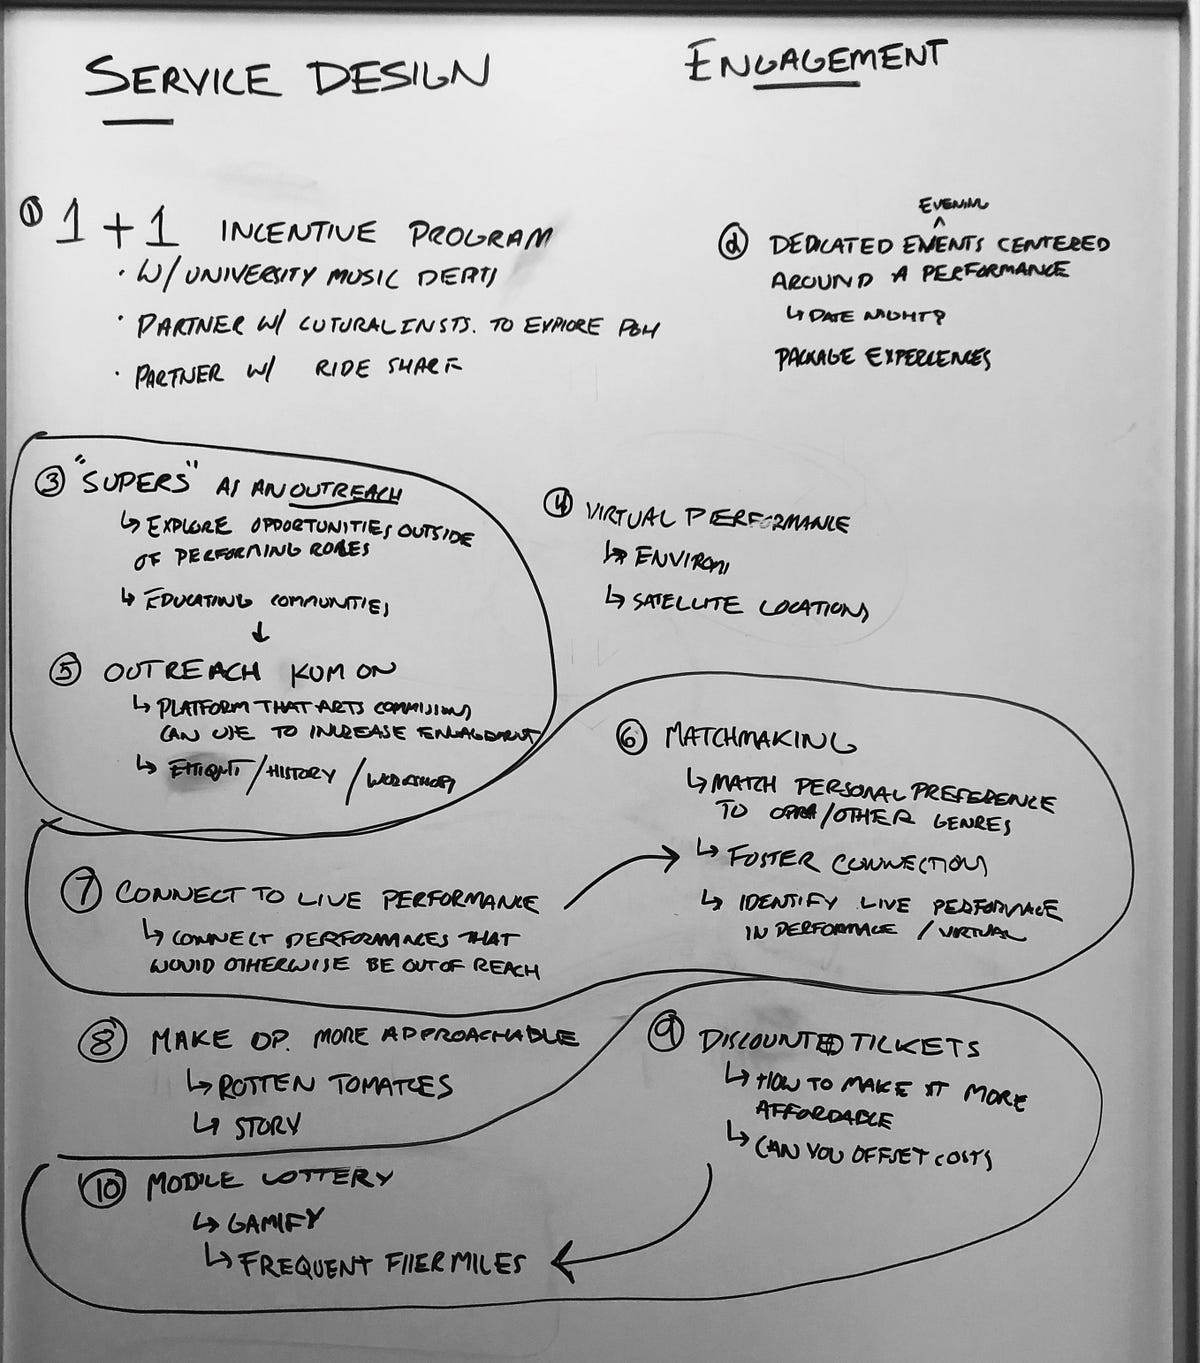 SERVICE DESIGN
ENGAGEMENT
① 1+1 INCENTIVE PROGRAM
· W/ UNIVERSITY MUSIC DEPTS
· PARTNER W/ CUTURAL INSTS. TO EXPLORE PGH
· PARTNER W/ RIDE SHARE
EVENING
② DEDICATED ^ EVENTS CENTERED
AROUND A PERFORMANCE
↳ DATE NIGHT?
PACKAGE EXPERIENCES
③ "SUPERS" AS AN OUTREACH
↳ EXPLORE OPPORTUNITIES OUTSIDE
OF PERFORMING ROLES
↳ EDUCATING COMMUNITIES
④ VIRTUAL PERFORMANCE
↳ ENVIRON
↳ SATELLITE LOCATIONS
⑤ OUTREACH KUMON
↳ PLATFORM THAT ARTS COMMISSIONS
CAN USE TO INCREASE ENGAGEMENT
↳ / HISTORY / WORKSHOP
⑥ MATCHMAKING
↳ MATCH PERSONAL PREFERENCE
TO OPRA/OTHER GENRES
↳ FOSTER CONNECTIONS
↳ IDENTIFY LIVE PERFORMACE
IN PERFORMACE / VIRTUAL
⑦ CONNECT TO LIVE PERFORMANCE
↳ CONNECT PERFORMANCES THAT
WOULD OTHERWISE BE OUT OF REACH
⑧ MAKE OP. MORE APPROACHABLE
↳ ROTTEN TOMATOES
↳ STORY
⑨ DISCOUNTED TICKETS
↳ HOW TO MAKE IT MORE
AFFORDABLE
↳ CAN YOU OFFSET COSTS
⑩ MOBILE LOTTERY
↳ GAMIFY
↳ FREQUENT FLIER MILES